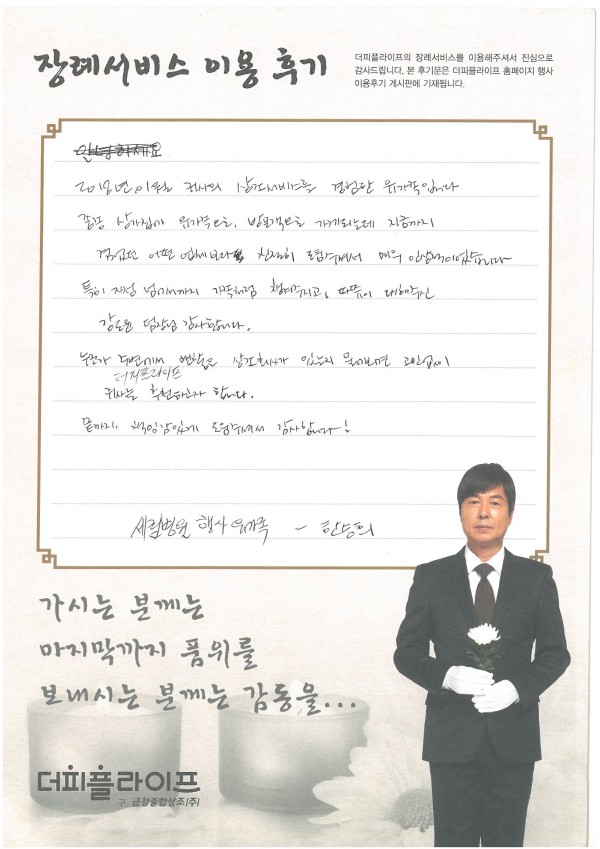 장례서비스 이용 후기
더피플라이프의 장례서비스를 이용해주셔서 진심으로
감사드립니다. 본 후기문은 더피플라이프 홈페이지 행사
이용후기 게시판에 기재됩니다.
안녕하세요
2018년 귀사의 상조서비스를 경험한 유가족입니다
종종 상가집에 유가족으로, 방문객으로 가게되는데 지금까지
경험했던 어떤 업체보다 친절히 도와주셔서 매우 인상적이었습니다
특히 가족처럼 챙겨주시고, 따뜻이 대해주신
팀장님 감사합니다.
누군가 주변에서 괜찮은 상조회사가 있는지 물어보면 고민없이
더피플라이프
귀사를 추천하고자 합니다.
끝까지 책임감있게 도와주셔서 감사합니다!
세림병원 행사 유가족 –
가시는 분께는
마지막까지 품위를
보내시는 분께는 감동을...
더피플라이프
구. 금강종합상조(주)